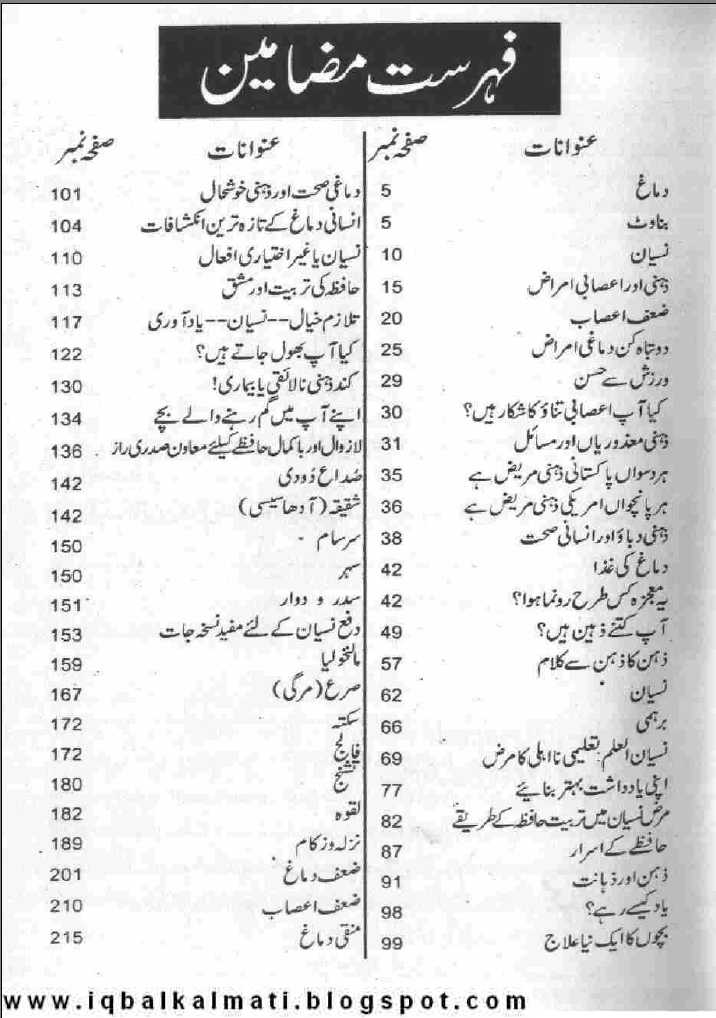 فہرست مضامین
عنوانات صفحہ نمبر
دماغ 5
بناوٹ 5
نسیان 10
ذہنی اور اعصابی امراض 15
ضعف اعصاب 20
دو تباہ کن دماغی امراض 25
ورزش سے حسن 29
کیا آپ اعصابی تناؤ کا شکار ہیں؟ 30
ذہنی معذوریاں اور مسائل 31
ہر دسواں پاکستانی ذہنی مریض ہے 35
ہر پانچواں امریکی ذہنی مریض ہے 36
ذہنی دباؤ اور انسانی صحت 38
دماغ کی غذا 42
یہ معجزہ کس طرح رونما ہوا؟ 42
آپ کتنے ذہین ہیں؟ 49
ذہن کا ذہن سے کلام 57
نسیان 62
برہمی 66
نسیان العلم، تعلیمی نااہلی کا مرض 69
اپنی یادداشت بہتر بنائیے 77
مرض نسیان میں تربیت حافظہ کے طریقے 82
حافظے کے اسرار 87
ذہن اور ذہانت 91
یاد کیسے رہے؟ 98
بچوں کا ایک نیا علاج 99
عنوانات صفحہ نمبر
دماغی صحت اور ذہنی خوشحال 101
انسانی دماغ کے تازہ ترین انکشافات 104
نسیان یا غیر اختیاری افعال 110
حافظہ کی تربیت اور مشق 113
تلازم خیال--نسیان--یادآوری 117
کیا آپ بھول جاتے ہیں؟ 122
کند ذہنی نالائقی یا بیماری! 130
اپنے آپ میں گم رہنے والے بچے 134
لازوال اور باکمال حافظے کیلئے معاون صدری راز 136
صُداع دُودی 142
شقیقہ (آدھا سیسی) 142
سرسام 150
سہر 150
سدر و دوار 151
دفع نسیان کے لئے مفید نسخہ جات 153
مالیخولیا 159
صرع (مرگی) 167
سکتہ 172
فالج 172
تشنج 180
لقوہ 182
نزلہ و زکام 189
ضعف دماغ 201
ضعف اعصاب 210
منقی دماغ 215
www.iqbalkalmati.blogspot.com